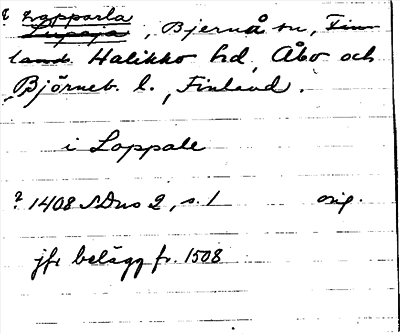 ? Lopparla
Lupaja, Bjernå sn, Fin-
land Halikko hd, Åbo och
Björneb. l., Finland.
i Loppale
? 1408 SDns 2, s. 1 orig.
jfr belägg fr. 1508